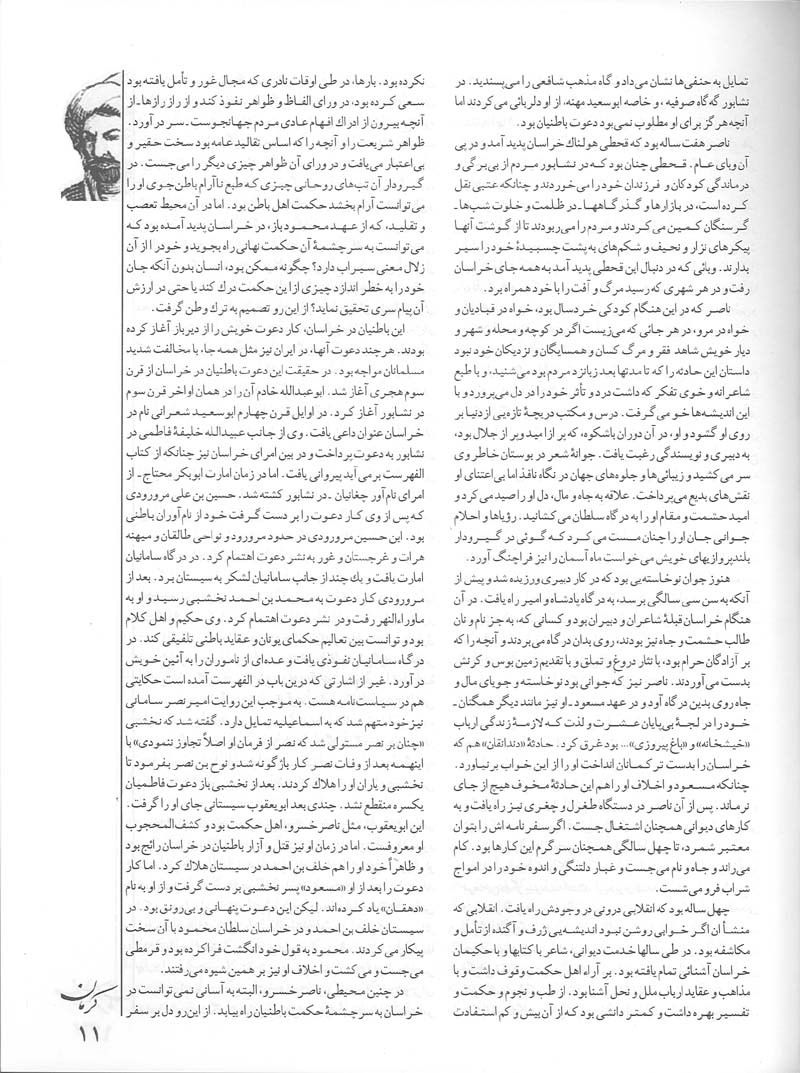 تمایل به حنفی‌ها نشان می‌داد و گاه مذهب شافعی را می‌پسندید. در
نشابور گه‌گاه صوفیه، و خاصه ابوسعید مهنه، از او دلربائی می‌کردند اما
آنچه هرگز برای او مطلوب نمی‌بود دعوت باطنیان بود.
ناصر هفت ساله بود که قحطی هولناك خراسان پدید آمد و در پی
آن وبای عام. قحطی چنان بود که در نشابور مردم از بی‌برگی و
درماندگی کودکان و فرزندان خود را می‌خوردند و چنانکه عتبی نقل
کرده است، در بازارها و گذرگاهها ـ در ظلمت و خلوت شب‌ها ـ
گرسنگان کمین می‌کردند و مردم را می‌ربودند تا از گوشت آنها
پیکرهای نزار و نحیف و شکم‌های به پشت چسبیدهٔ خود را سیر
بدارند. وبائی که در دنبال این قحطی پدید آمد به همه جای خراسان
رفت و در هر شهری که رسید مرگ و آفت را با خود همراه برد.
ناصر که در این هنگام کودکی خردسال بود، خواه در قبادیان و
خواه در مرو، در هر جائی که می‌زیست اگر در کوچه و محله و شهر و
دیار خویش شاهد فقر و مرگ کسان و همسایگان و نزدیکان خود نبود
داستان این حادثه را که تا مدتها بعد زبانزد مردم بود می‌شنید، و با طبع
شاعرانه و خوی تفکر که داشت درد و تأثر خود را در دل می‌پرورد و با
این اندیشه‌ها خو می‌گرفت. درس و مکتب دریچهٔ تازه‌یی از دنیا بر
روی او گشود و او، در آن دوران باشکوه، که پر از امید و پر از جلال بود،
به دبیری و نویسندگی رغبت یافت. جوانهٔ شعر در بوستان خاطر وی
سر می‌کشید و زیبائی‌ها و جلوه‌های جهان در نگاه نافذ اما بی‌اعتنای او
نقش‌های بدیع می‌پرداخت. علاقه به جاه و مال، دل او را صید می‌کرد و
امید حشمت و مقام او را به درگاه سلطان می‌کشانید. رؤیاها و احلام
جوانی جان او را چنان مست می‌کرد که گوئی در گیرودار
بلندپروازیهای خویش می‌خواست ماه آسمان را نیز فراچنگ آورد.
هنوز جوان نوخاسته‌یی بود که در کار دبیری ورزیده شد و پیش از
آنکه به سن سی سالگی برسد، به درگاه پادشاه و امیر راه یافت. در آن
هنگام خراسان قبلهٔ شاعران و دبیران بود و کسانی که، به جز نام و نان
طالب حشمت و جاه نیز بودند، روی بدان درگاه می‌بردند و آنچه را که
بر آزادگان حرام بود، با نثار دروغ و تملق و با تقدیم زمین بوس و کرنش
بدست می‌آوردند. ناصر نیز که جوانی بود نوخاسته و جویای مال و
جاه روی بدین درگاه آورد و در عهد مسعود ـ او نیز مانند دیگر همگنان ـ
خود را در لجهٔ بی‌پایان عشرت و لذت که لازمهٔ زندگی ارباب
«خیشخانه» و «باغ پیروزی»... بود غرق کرد. حادثهٔ «دندانقان» هم که
خراسان را بدست ترکمانان انداخت او را از این خواب برنیاورد.
چنانکه مسعود و اخلاف او را هم این حادثهٔ مخوف هیچ از جای
نرماند. پس از آن ناصر در دستگاه طغرل و چغری نیز راه یافت و به
کارهای دیوانی همچنان اشتغال جست. اگر سفرنامه اش را بتوان
معتبر شمرد، تا چهل سالگی همچنان سرگرم این کارها بود. کام
می‌راند و جاه و نام می‌جست و غبار دلتنگی و اندوه خود را در امواج
شراب فرو می‌شست.
چهل ساله بود که انقلابی درونی در وجودش راه یافت. انقلابی که
منشأ آن اگر خوابی روشن نبود اندیشه‌یی ژرف و آگنده از تأمل و
مکاشفه بود. در طی سالها خدمت دیوانی، شاعر با کتابها و با حکیمان
خراسان آشنائی تمام یافته بود. بر آراء اهل حکمت وقوف داشت و با
مذاهب و عقاید ارباب ملل و نحل آشنا بود. از طب و نجوم و حکمت و
تفسیر بهره داشت و کمتر دانشی بود که از آن بیش و کم استفادت
نکرده بود. بارها، در طی اوقات نادری که مجال غور و تأمل یافته بود
سعی کرده بود، در ورای الفاظ و ظواهر نفوذ کند و از راز رازها ـ از
آنچه بیرون از ادراك افهام عادی مردم جهانجوست ـ سر در آورد.
ظواهر شریعت را و آنچه را که اساس تقالید عامه بود سخت حقیر و
بی‌اعتبار می‌یافت و در ورای آن ظواهر چیزی دیگر را می‌جست. در
گیرودار آن تب‌های روحانی چیزی که طبع ناآرام باطن‌جوی او را
می‌توانست آرام بخشد حکمت اهل باطن بود. اما در آن محیط تعصب
و تقلید، که از عهد محمود باز، در خراسان پدید آمده بود که
می‌توانست به سرچشمهٔ آن حکمت نهانی راه بجوید و خود را از آن
زلال معنی سیراب دارد؟ چگونه ممکن بود، انسان بدون آنکه جان
خود را به خطر اندازد چیزی از این حکمت درك کند یا حتی در ارزش
آن پیام سری تحقیق نماید؟ از این رو تصمیم به ترك وطن گرفت.
این باطنیان در خراسان، کار دعوت خویش را از دیرباز آغاز کرده
بودند. هر چند دعوت آنها، در ایران نیز مثل همه جا، با مخالفت شدید
مسلمانان مواجه بود. در حقیقت این دعوت باطنیان در خراسان از قرن
سوم هجری آغاز شد. ابوعبدالله خادم آن را در همان اواخر قرن سوم
در نشابور آغاز کرد. در اوایل قرن چهارم ابوسعید شعرانی نام در
خراسان عنوان داعی یافت. وی از جانب عبیدالله خلیفهٔ فاطمی در
نشابور به دعوت پرداخت و در بین امرای خراسان نیز چنانکه از کتاب
الفهرست برمی‌آید پیروانی یافت. اما در زمان امارت ابوبکر محتاج ـ از
امرای نام‌آور چغانیان ـ در نشابور کشته شد. حسین بن علی مرورودی
که پس از وی کار دعوت را بر دست گرفت خود از نام‌آوران باطنی
بود. این حسین مرورودی در حدود مرورود و نواحی طالقان و میهنه
هرات و غرجستان و غور به نشر دعوت اهتمام کرد. در درگاه سامانیان
امارت یافت و یك چند از جانب سامانیان لشکر به سیستان برد. بعد از
مرورودی کار دعوت به محمد بن احمد نخشبی رسید و او به
ماوراءالنهر رفت و در نشر دعوت اهتمام کرد. وی حکیم و اهل کلام
بود و توانست بین تعالیم حکمای یونان و عقاید باطنی تلفیقی کند. در
درگاه سامانیان نفوذی یافت و عده‌ای از ناموران را به آئین خویش
درآورد. غیر از اشارتی که درین باب در الفهرست آمده است حکایتی
هم در سیاست‌نامه هست. به موجب این روایت امیر نصر سامانی
نیز خود متهم شد که به اسماعیلیه تمایل دارد. گفته شد که نخشبی
«چنان بر نصر مستولی شد که نصر از فرمان او اصلاً تجاوز ننمودی» با
اینهمه بعد از وفات نصر کار باژگونه شد و نوح بن نصر بفرمود تا
نخشبی و یاران او را هلاك کردند. بعد از نخشبی باز دعوت فاطمیان
یکسره منقطع نشد. چندی بعد ابویعقوب سیستانی جای او را گرفت.
این ابویعقوب، مثل ناصرخسرو، اهل حکمت بود و کشف‌المحجوب
او معروفست. اما در زمان او نیز قتل و آزار باطنیان در خراسان رائج بود
و ظاهراً خود او را هم خلف بن احمد در سیستان هلاك کرد. اما کار
دعوت را بعد از او «مسعود» پسر نخشبی بر دست گرفت و از او به نام
«دهقان» یاد کرده‌اند. لیکن این دعوت پنهانی و بی‌رونق بود. در
سیستان خلف بن احمد و در خراسان سلطان محمود با آن سخت
پیکار می‌کردند. محمود به قول خود انگشت فرا کرده بود و قرمطی
می‌جست و می‌کشت و اخلاف او نیز بر همین شیوه می‌رفتند.
در چنین محیطی، ناصرخسرو، البته به آسانی نمی‌توانست در
خراسان به سرچشمهٔ حکمت باطنیان راه بیابد. از این‌رو دل بر سفر
کرمان
۱۱